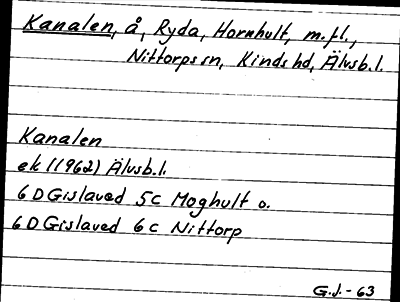 Kanalen, å, Ryda, Hornhult, m.fl.,
Nittorps sn, Kinds hd, Älvsb.l.
Kanalen
ek (1962) Älvsb.l.
6D Gislaved 5c Moghult o.
6D Gislaved 6c Nittorp
G.J.-63